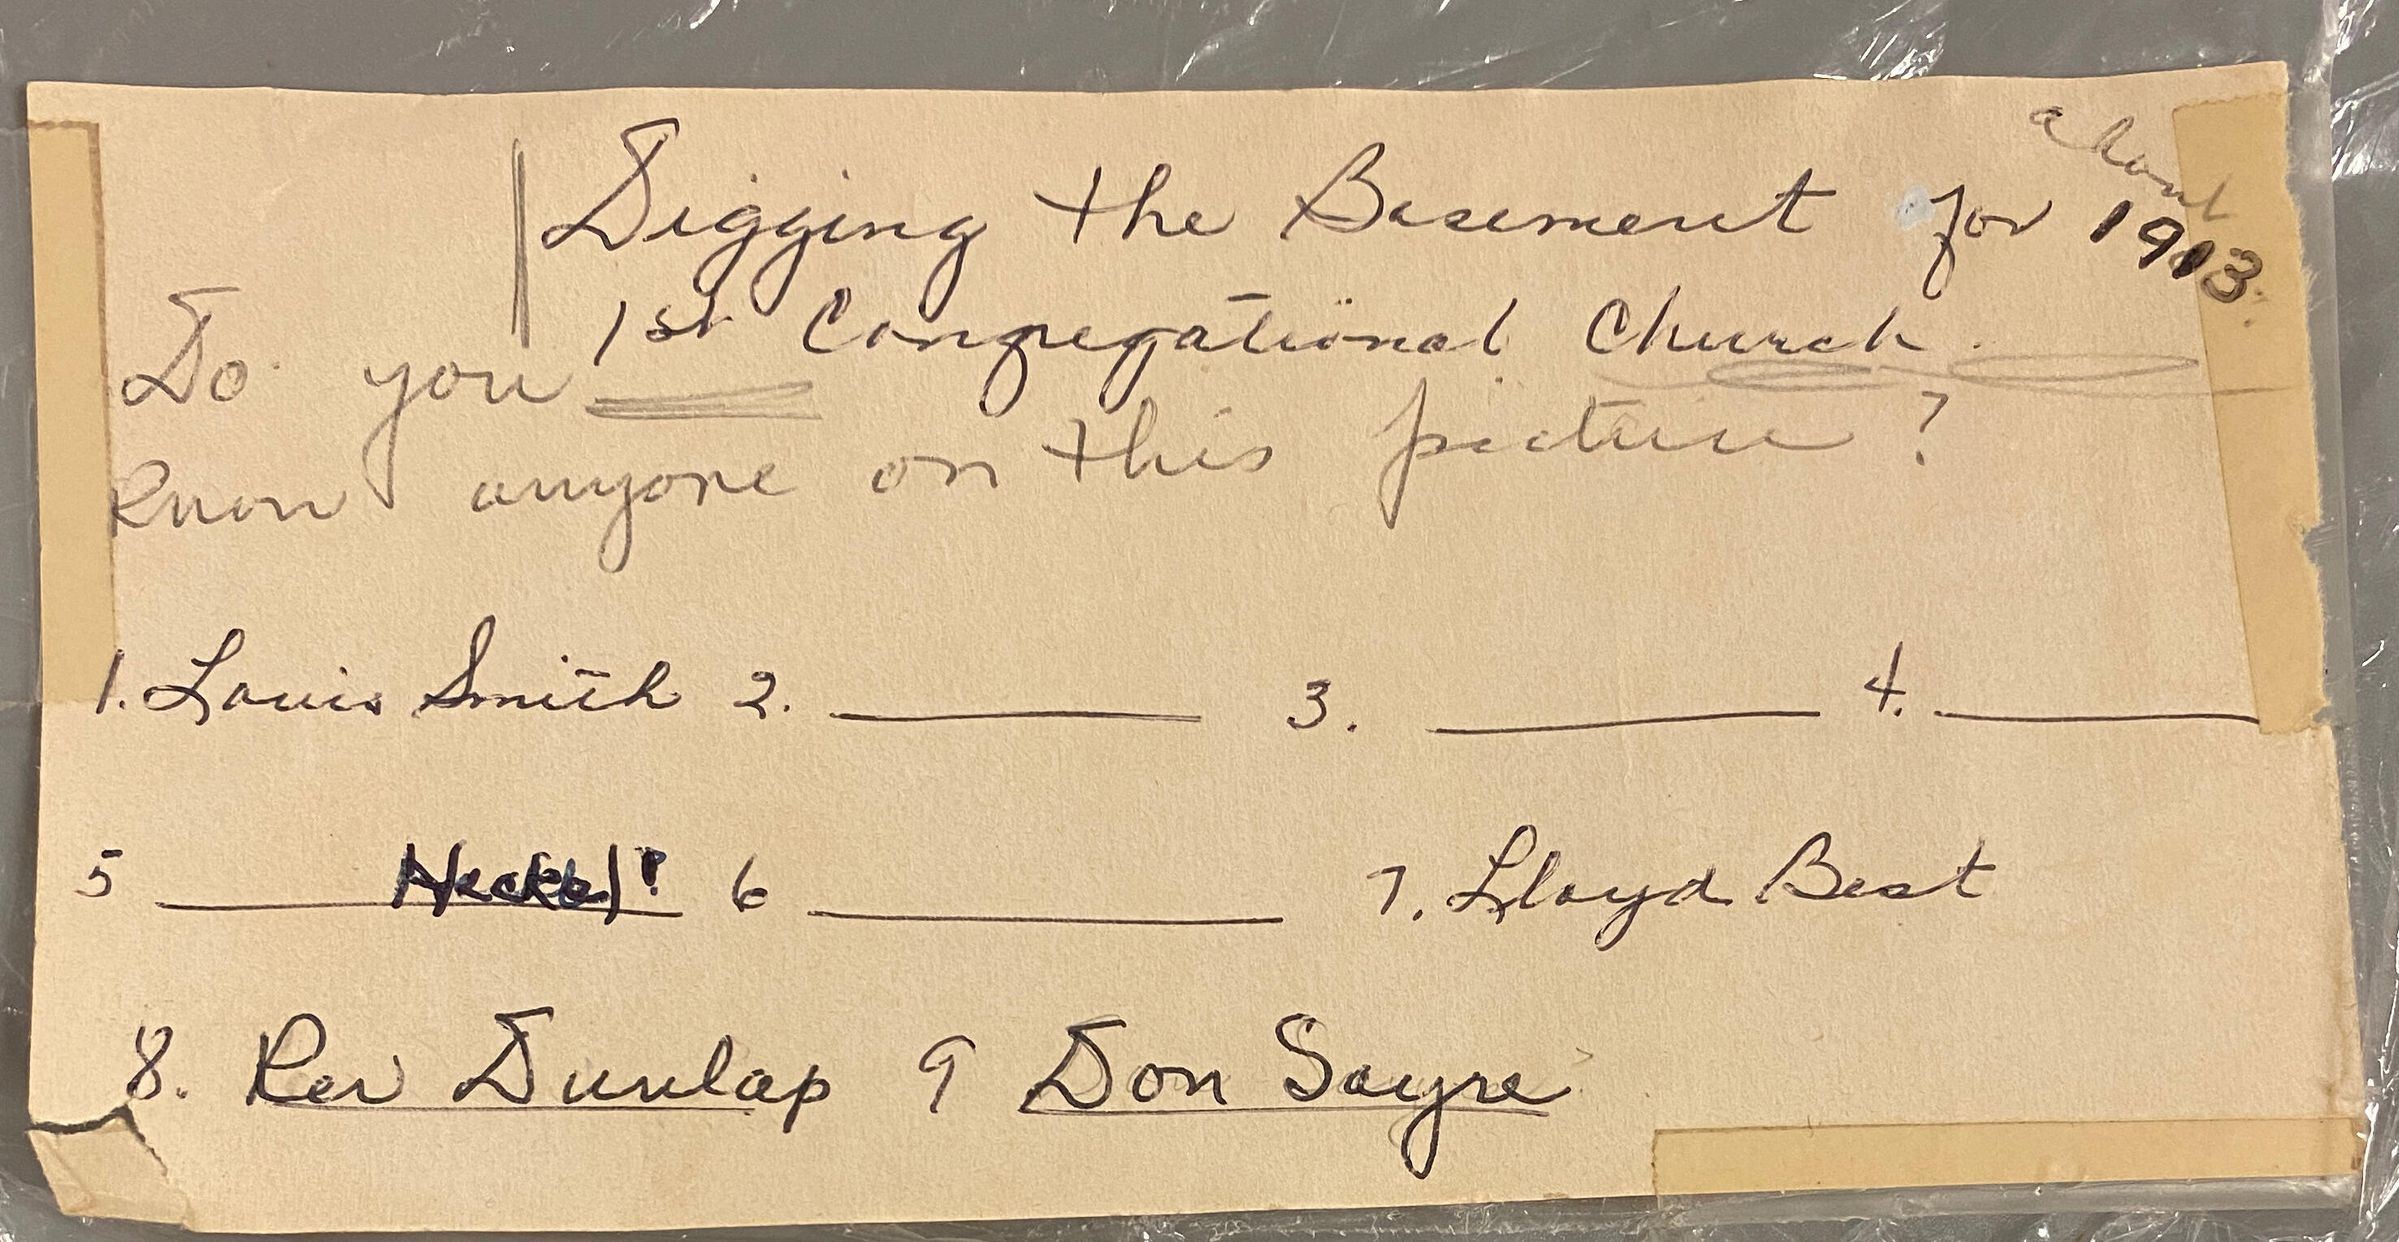 about
Digging the Basement for 1913.
1st Congregational Church.
Do you
know anyone on this picture?
1. Louis Smith 2. ________ 3. ________ 4. ________
5 ________ 6 ________ 7. Lloyd Best
8. Rev Dunlap 9 Don Sayre